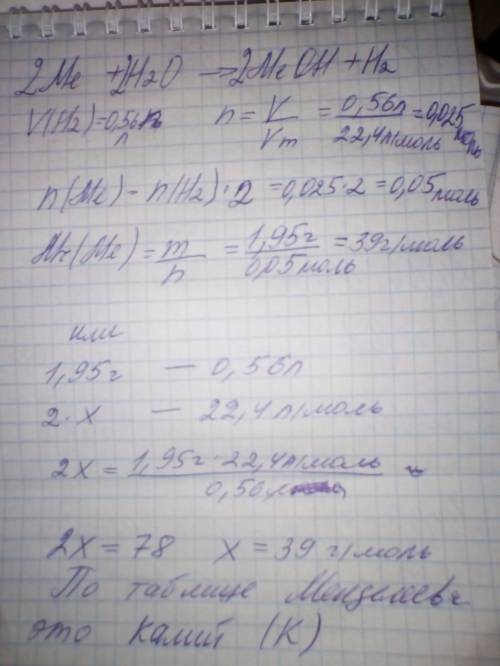 2Me + 2H2O → 2MeOH + H2
V(H2) = 0,56 л n = V/Vm = 0,56л/22,4л/моль = 0,025 моль
n(Me) - n(H2)·2 = 0,025·2 = 0,05 моль
Mr(Me) = m/n = 1,95г/0,05моль = 39г/моль
или
1,95г — 0,56л
2·x — 22,4л/моль
2x = 1,95г·22,4л/моль/0,56
2x = 78 x = 39 г/моль
По таблице Менделеева
это Калий (K)